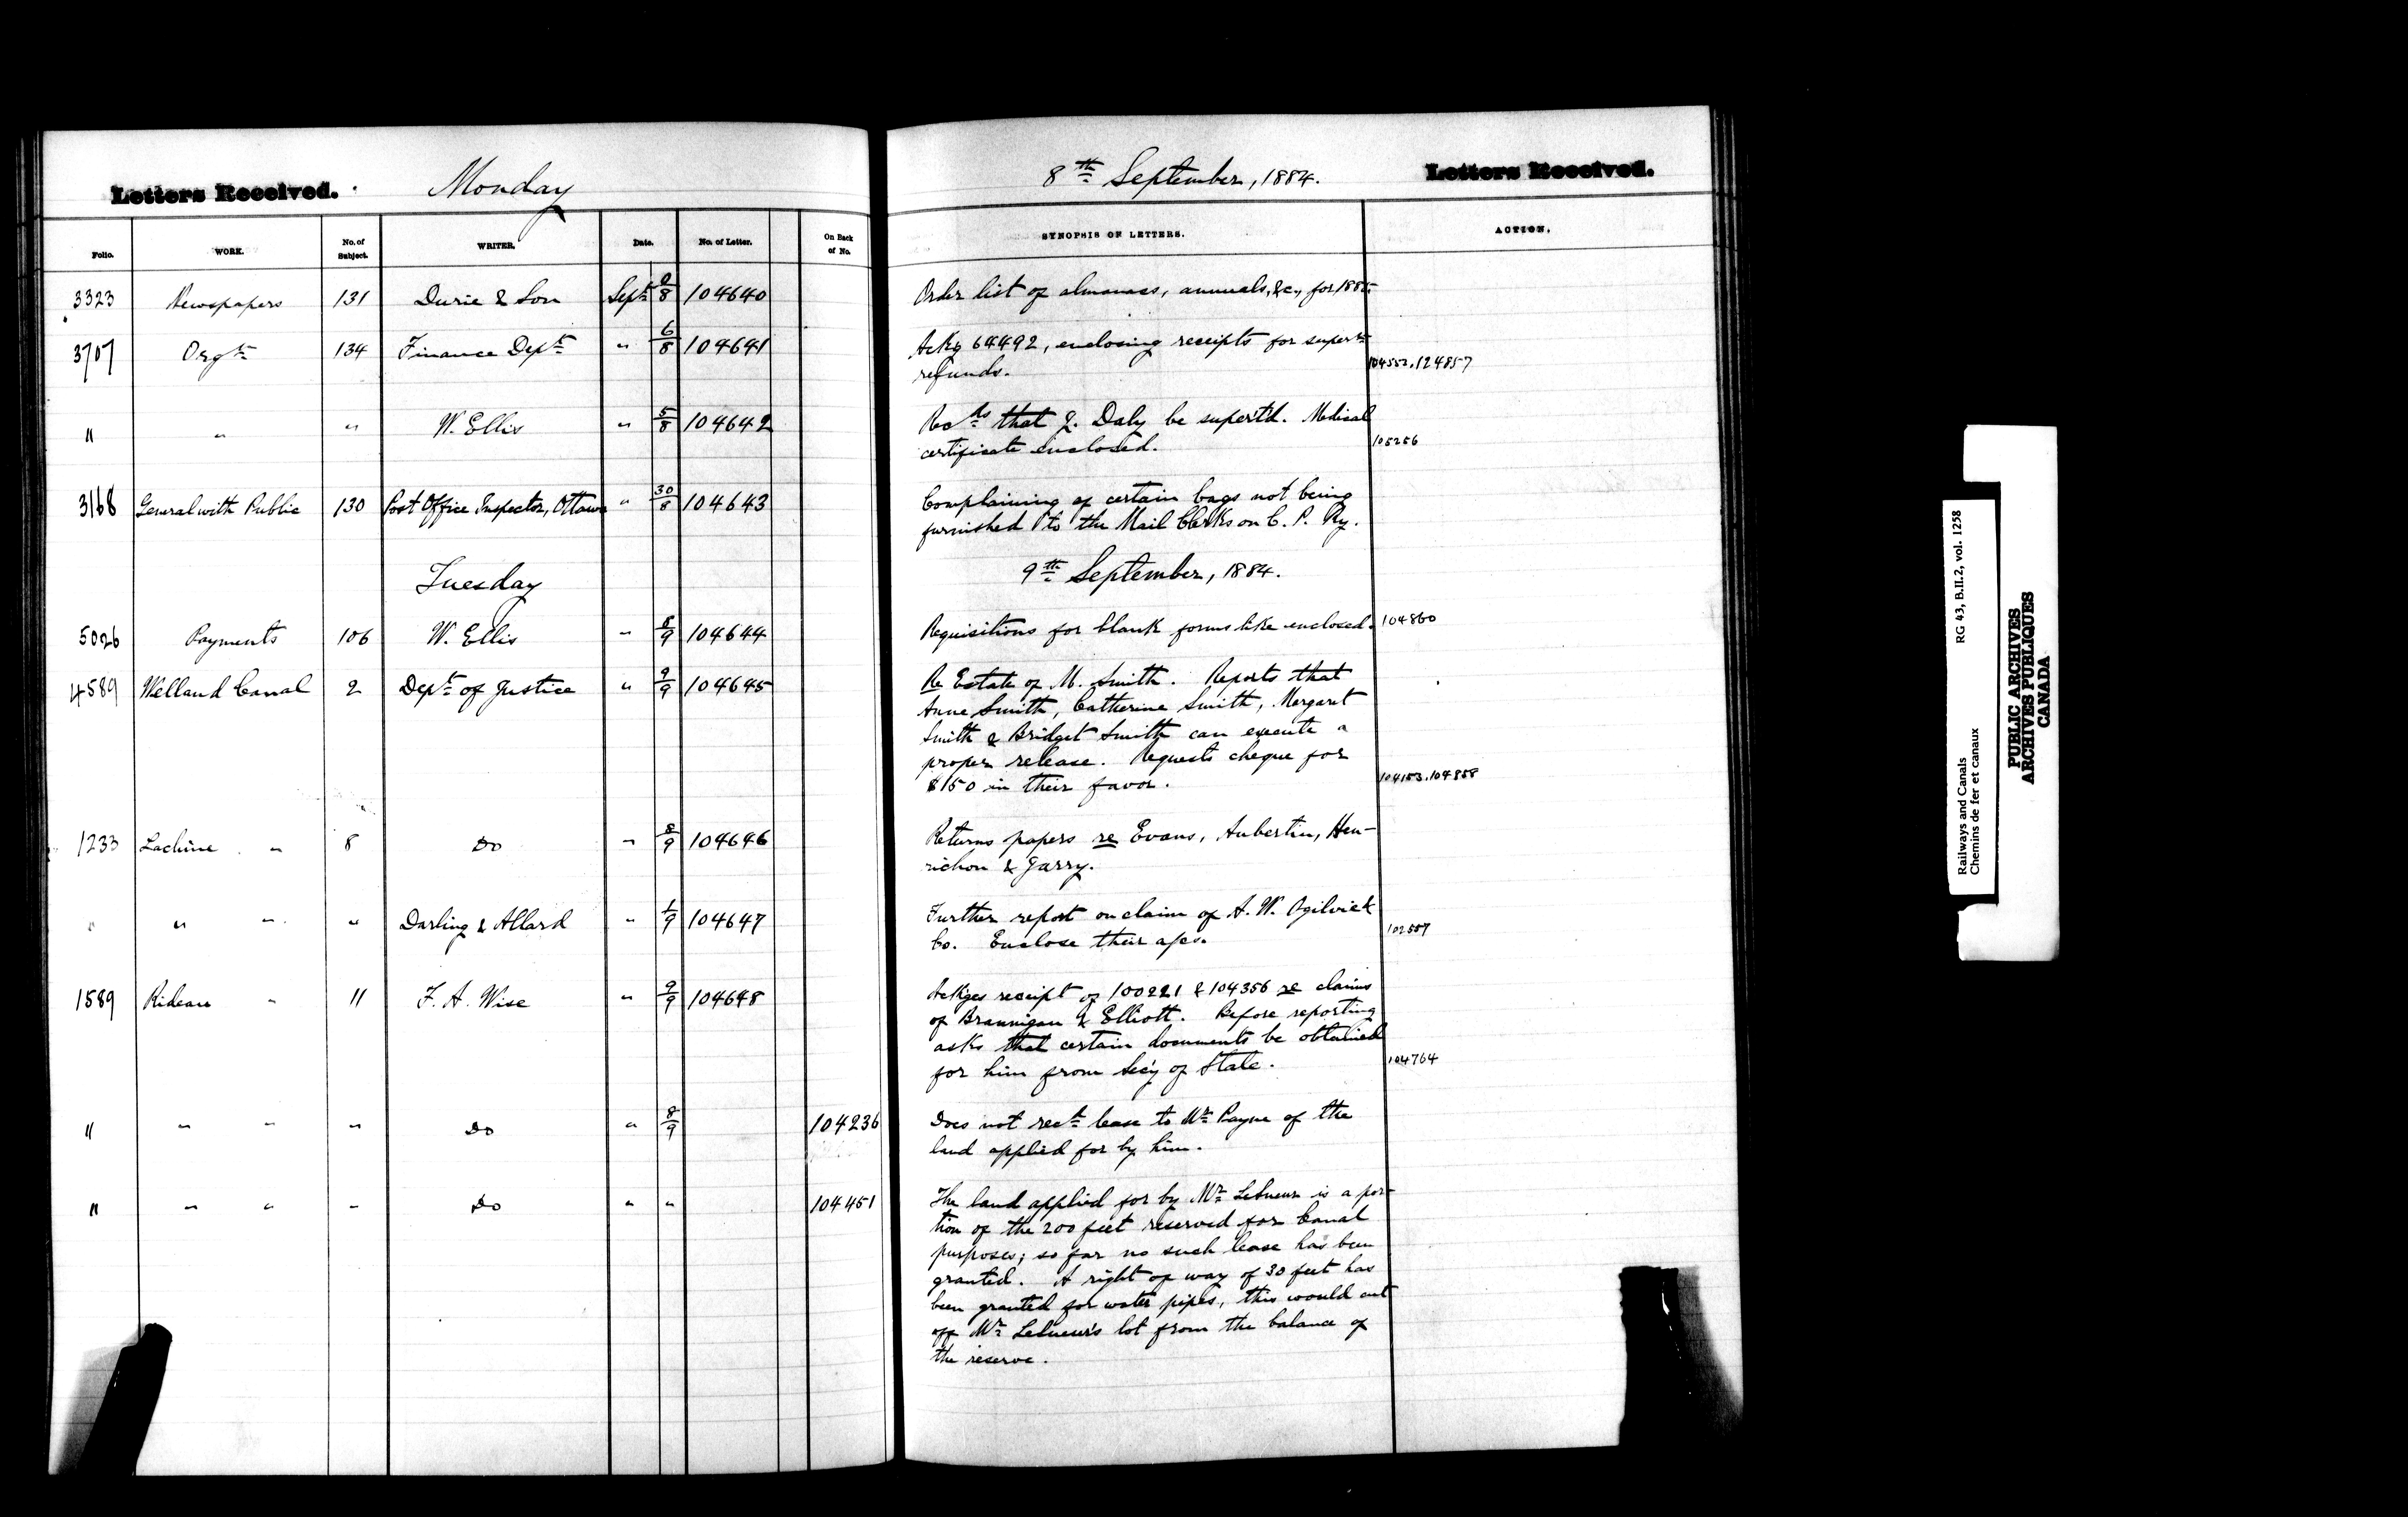 Letters Received. Monday
8th September, 1884. Letters Received.
Folio. WORK. No. of Subject. WRITER. Date. No. of Letter. On Back of No. SYNOPSIS OF LETTERS. ACTION.
3323 Newspapers 131 Durie & Son Sept 8 104640 Order list of almanacs, annuals, &c., for 1885.
3707 Orgn 134 Finance Dept " 6/8 104641 Ackg 64492, enclosing receipts for superan
refunds. 104552.124857
" " " W. Ellis " 5/8 104642 Recds that J. Daly be supertd. Medical
certificate enclosed. 105256
3168 General with Public 130 Post Office Inspector, Ottawa " 30/8 104643 Complaining of certain bags not being
furnished to the Mail Clerks on C. P. Ry.
Tuesday 9th September, 1884.
5026 Payments 106 W. Ellis " 8/9 104644 Requisitions for blank forms like enclosed. 104860
4589 Welland Canal 2 Dept of Justice " 9/9 104645 Re Estate of M. Smith. Reports that
Anne Smith, Catherine Smith, Margaret
Smith & Bridget Smith can execute a
proper release. Requests cheque for
$150 in their favor. 104153.104858
1233 Lachine " 8 Do " 8/9 104646 Returns papers re Evans, Aubertin, Hen-
richon & Garry.
" " " " Darling & Allard " 1/9 104647 Further report on claim of A. W. Ogilvie &
Co. Enclose their a/cs. 102557
1589 Rideau " 11 F. A. Wise " 9/9 104648 Ackges receipt of 100221 & 104356 re claims
of Brannigan & Elliott. Before reporting
asks that certain documents be obtained
for him from Secy of State. 104764
" " " " Do " 8/9 104236 Does not rect lease to Mr Payne of the
land applied for by him.
" " " " Do " " 104451 The land applied for by Mr Lesueur is a por-
tion of the 200 feet reserved for Canal
purposes; so far no such lease has been
granted. A right of way of 30 feet has
been granted for water pipes, this would cut
off Mr Lesueur's lot from the balance of
the reserve.
Railways and Canals RG 43, B.II.2, vol. 1258
Chemins de fer et canaux
PUBLIC ARCHIVES
ARCHIVES PUBLIQUES
CANADA